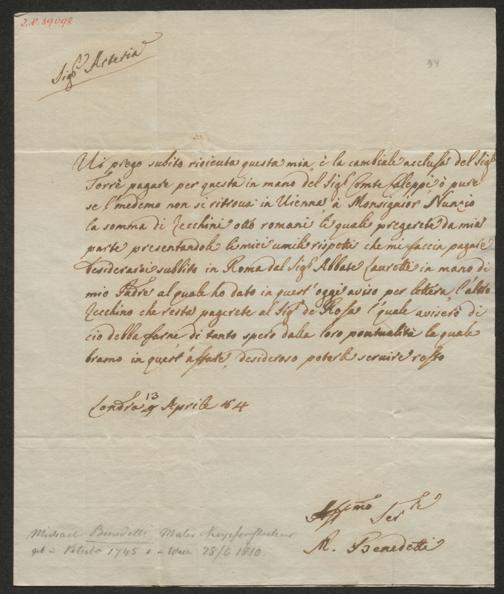 I.N. 39092
94
Sigr Artaria
Vi prego subito riceuta questa mia, è la cambiale acclusa del Sigr
Torrè pagare per questa in mano del Sigr Comte Caleppi, ò pure
se l medemo non si ritrova in Vienna à Monsignior Nunzio
la somma di Zecchini otto romani li quale pregerete da mia
parte presentandoli li miei umili rispetti che mi faccia pagare
desiderarei subbito in Roma dal Sigr Abbate Lauretti in mano di
mio Padre al quale ho dato in quest'oggi aviso per lettera, l'altro
Zecchino che resta pagerete al Sigr de Rossa l'quale aviserò di
ciò debba farne di tanto spero dalla loro pontualità la quale
bramo in quest'affare, desideroso poterli servire resto
Londra 13 Aprile
Affmo Serre
M. Benedetti
Michael Benedetti Maler Kupferstecher
geb. 1745 Wien 28/6 1810